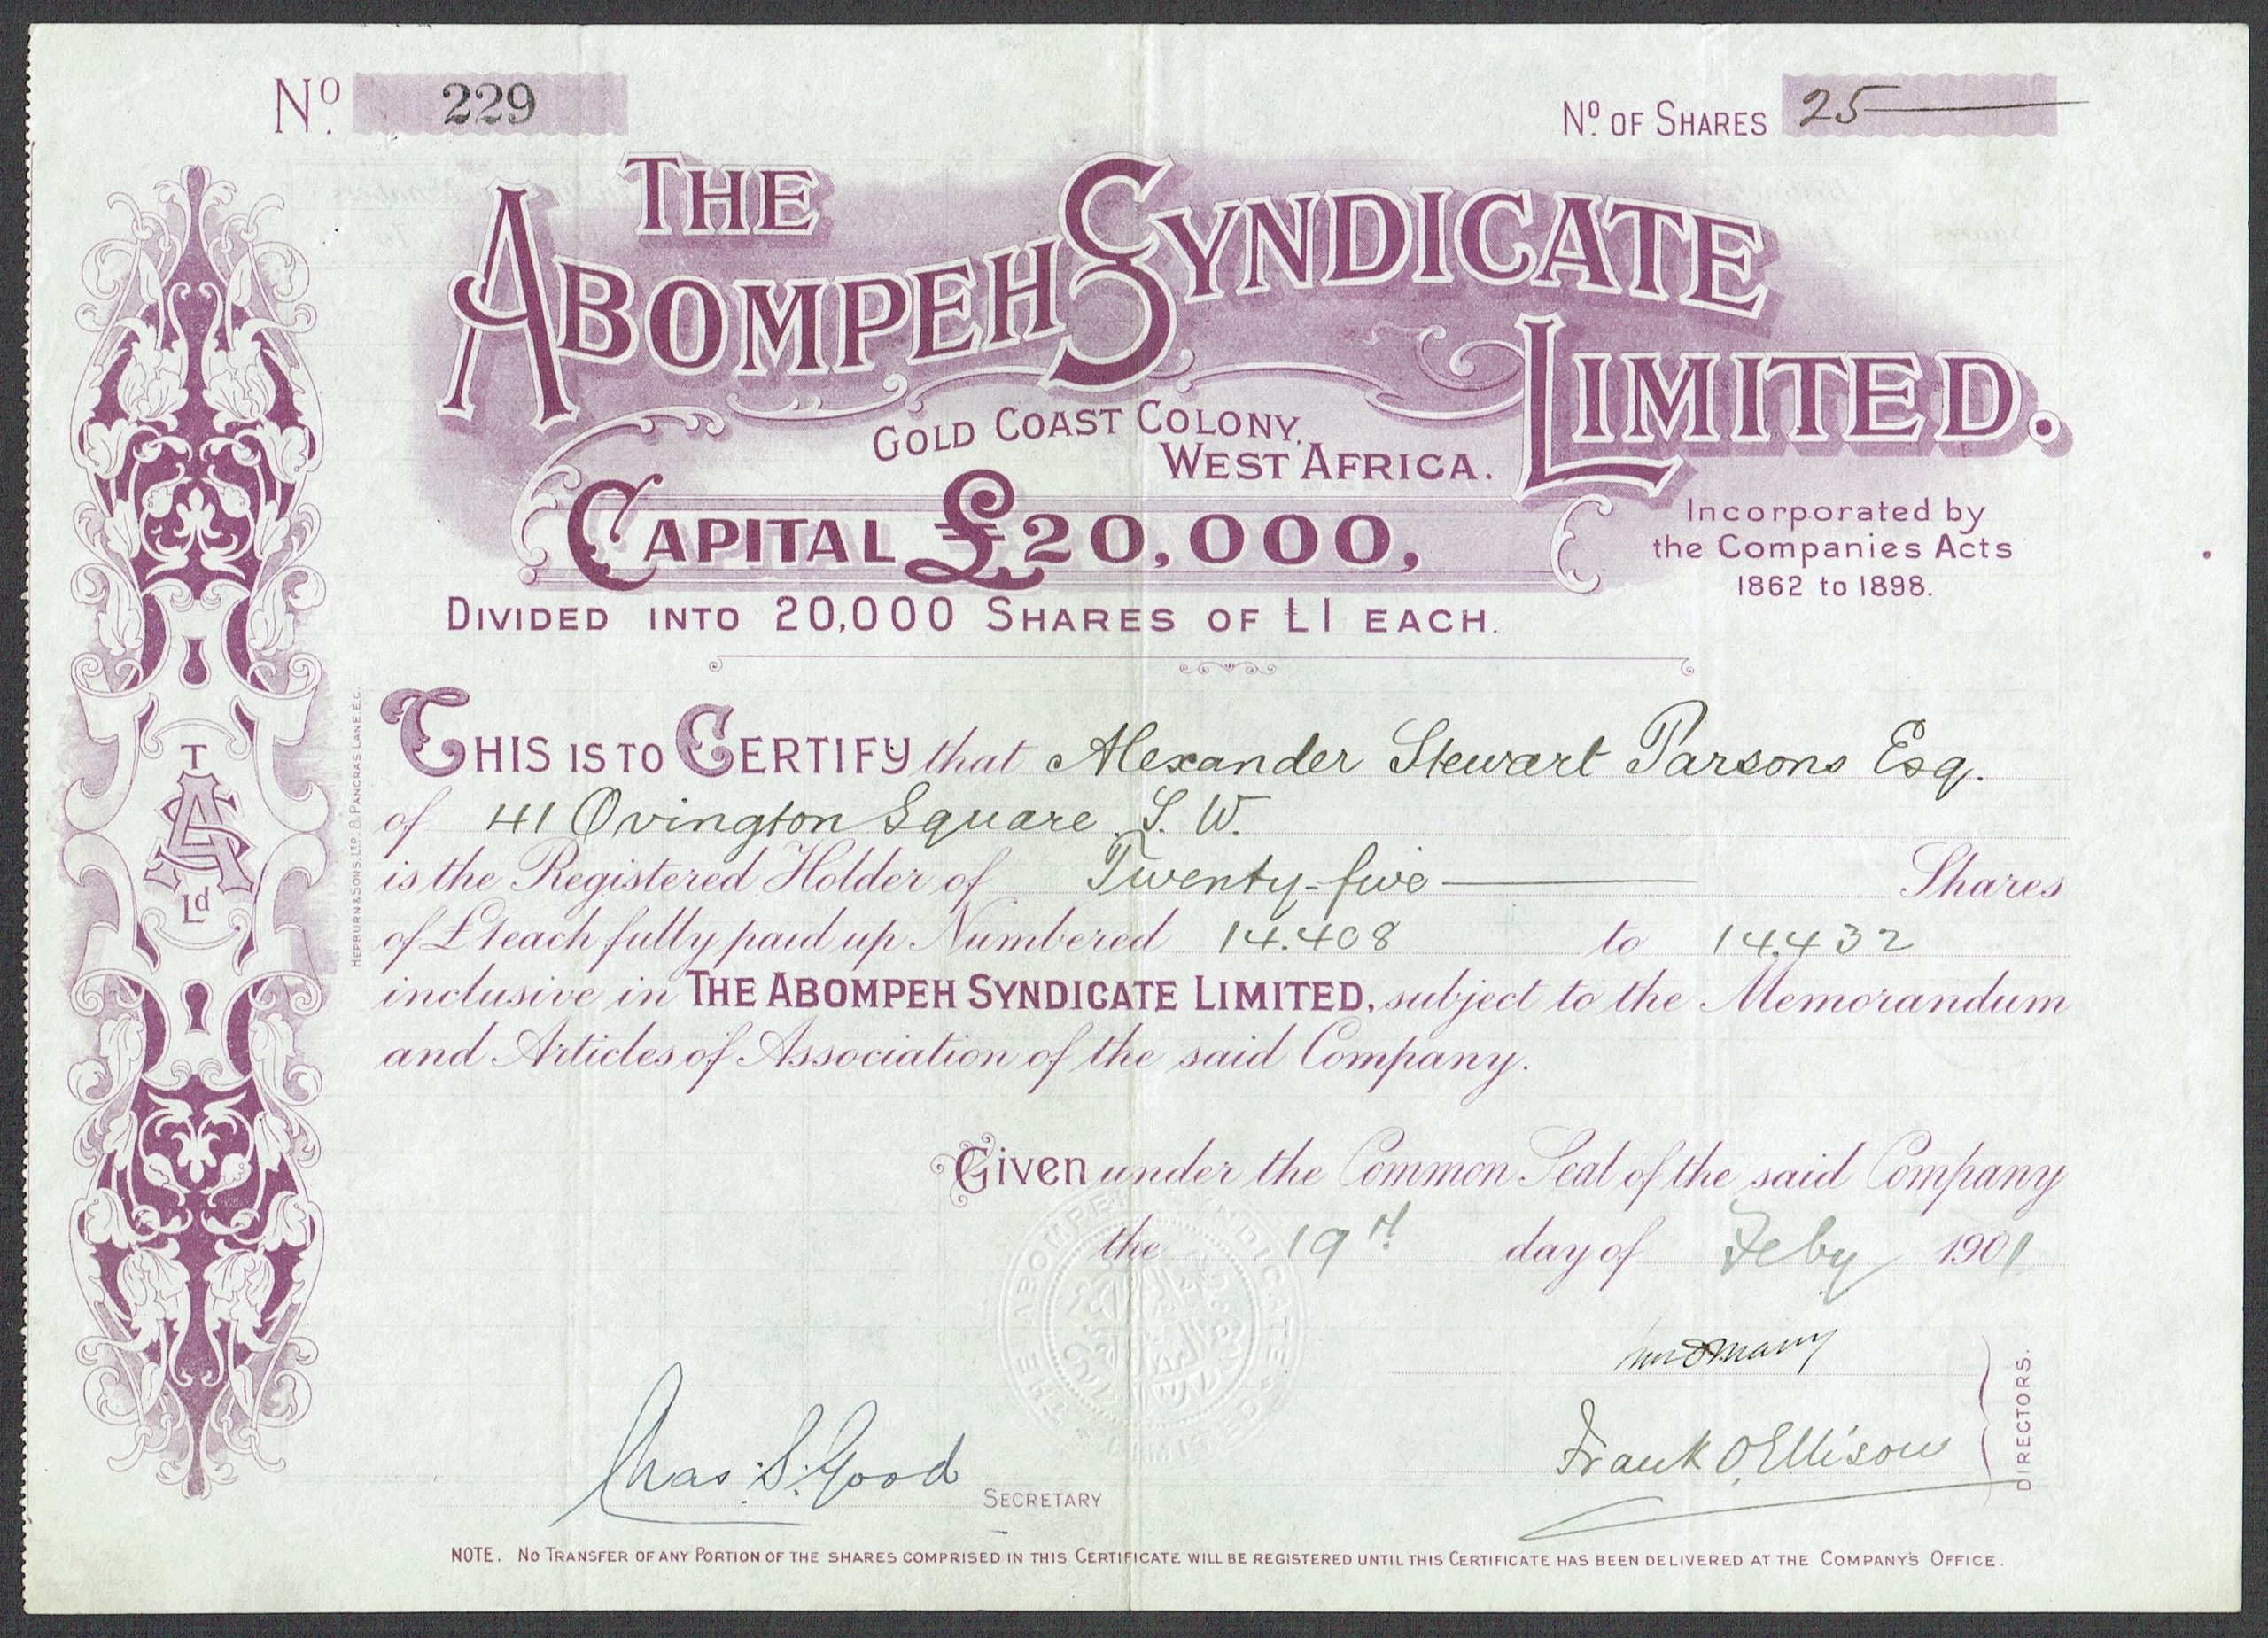 No. 229
No. OF SHARES 25
THE
ABOMPEH SYNDICATE
LIMITED.
GOLD COAST COLONY,
WEST AFRICA.
CAPITAL £20,000,
Incorporated by
the Companies Acts
1862 to 1898.
DIVIDED INTO 20,000 SHARES OF £1 EACH.
THIS IS TO CERTIFY that Alexander Stewart Parsons Esq.
of 41 Ovington Square. S.W.
is the Registered Holder of Twenty-five Shares
of £1 each fully paid up Numbered 14.408 to 14.432
inclusive in THE ABOMPEH SYNDICATE LIMITED, subject to the Memorandum
and Articles of Association of the said Company.
Given under the Common Seal of the said Company
the 19th day of Feby 1901
THE ABOMPEH SYNDICATE LIMITED
Chas. S. Good
SECRETARY
Frank O. Ellison
DIRECTORS.
NOTE. NO TRANSFER OF ANY PORTION OF THE SHARES COMPRISED IN THIS CERTIFICATE WILL BE REGISTERED UNTIL THIS CERTIFICATE HAS BEEN DELIVERED AT THE COMPANY'S OFFICE.
T
AS
Ld
HEPBURN & SONS, LTD. 8, PANCRAS LANE, E.C.